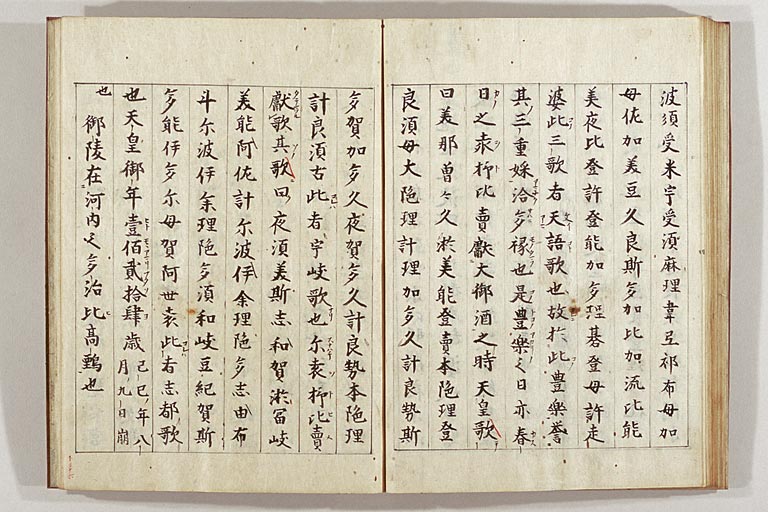 波須受米宇受湏麻理韋弖祁布母加
母佐加美豆久良斯多加比加流比能
美夜比登許登能加多理碁登母許走
婆此三歌者天語歌也故於此豊樂誉
其三重婇洽多祿也是豊樂之日亦春
日之袁杼比賣獻大御酒之時天皇歌
曰美那曽々久淤美能登賣本陁理登
良湏母大陁理計理加多久計良勢斯
多賀加多久夜賀多久計良勢本陁理
計良湏古此者宇岐歌也尓袁杼比賣
獻歌其歌曰夜湏美斯志和賀淤冨岐
美能阿佐計尓波伊余理陁多志由布
斗尓波伊余理陁多湏和岐豆紀賀斯
多能伊多尓母賀阿世袁此者志都歌
也天皇御年壹佰貳拾肆歳己巳年八
月九日崩
也
御陵在河内之多治比高鸇也